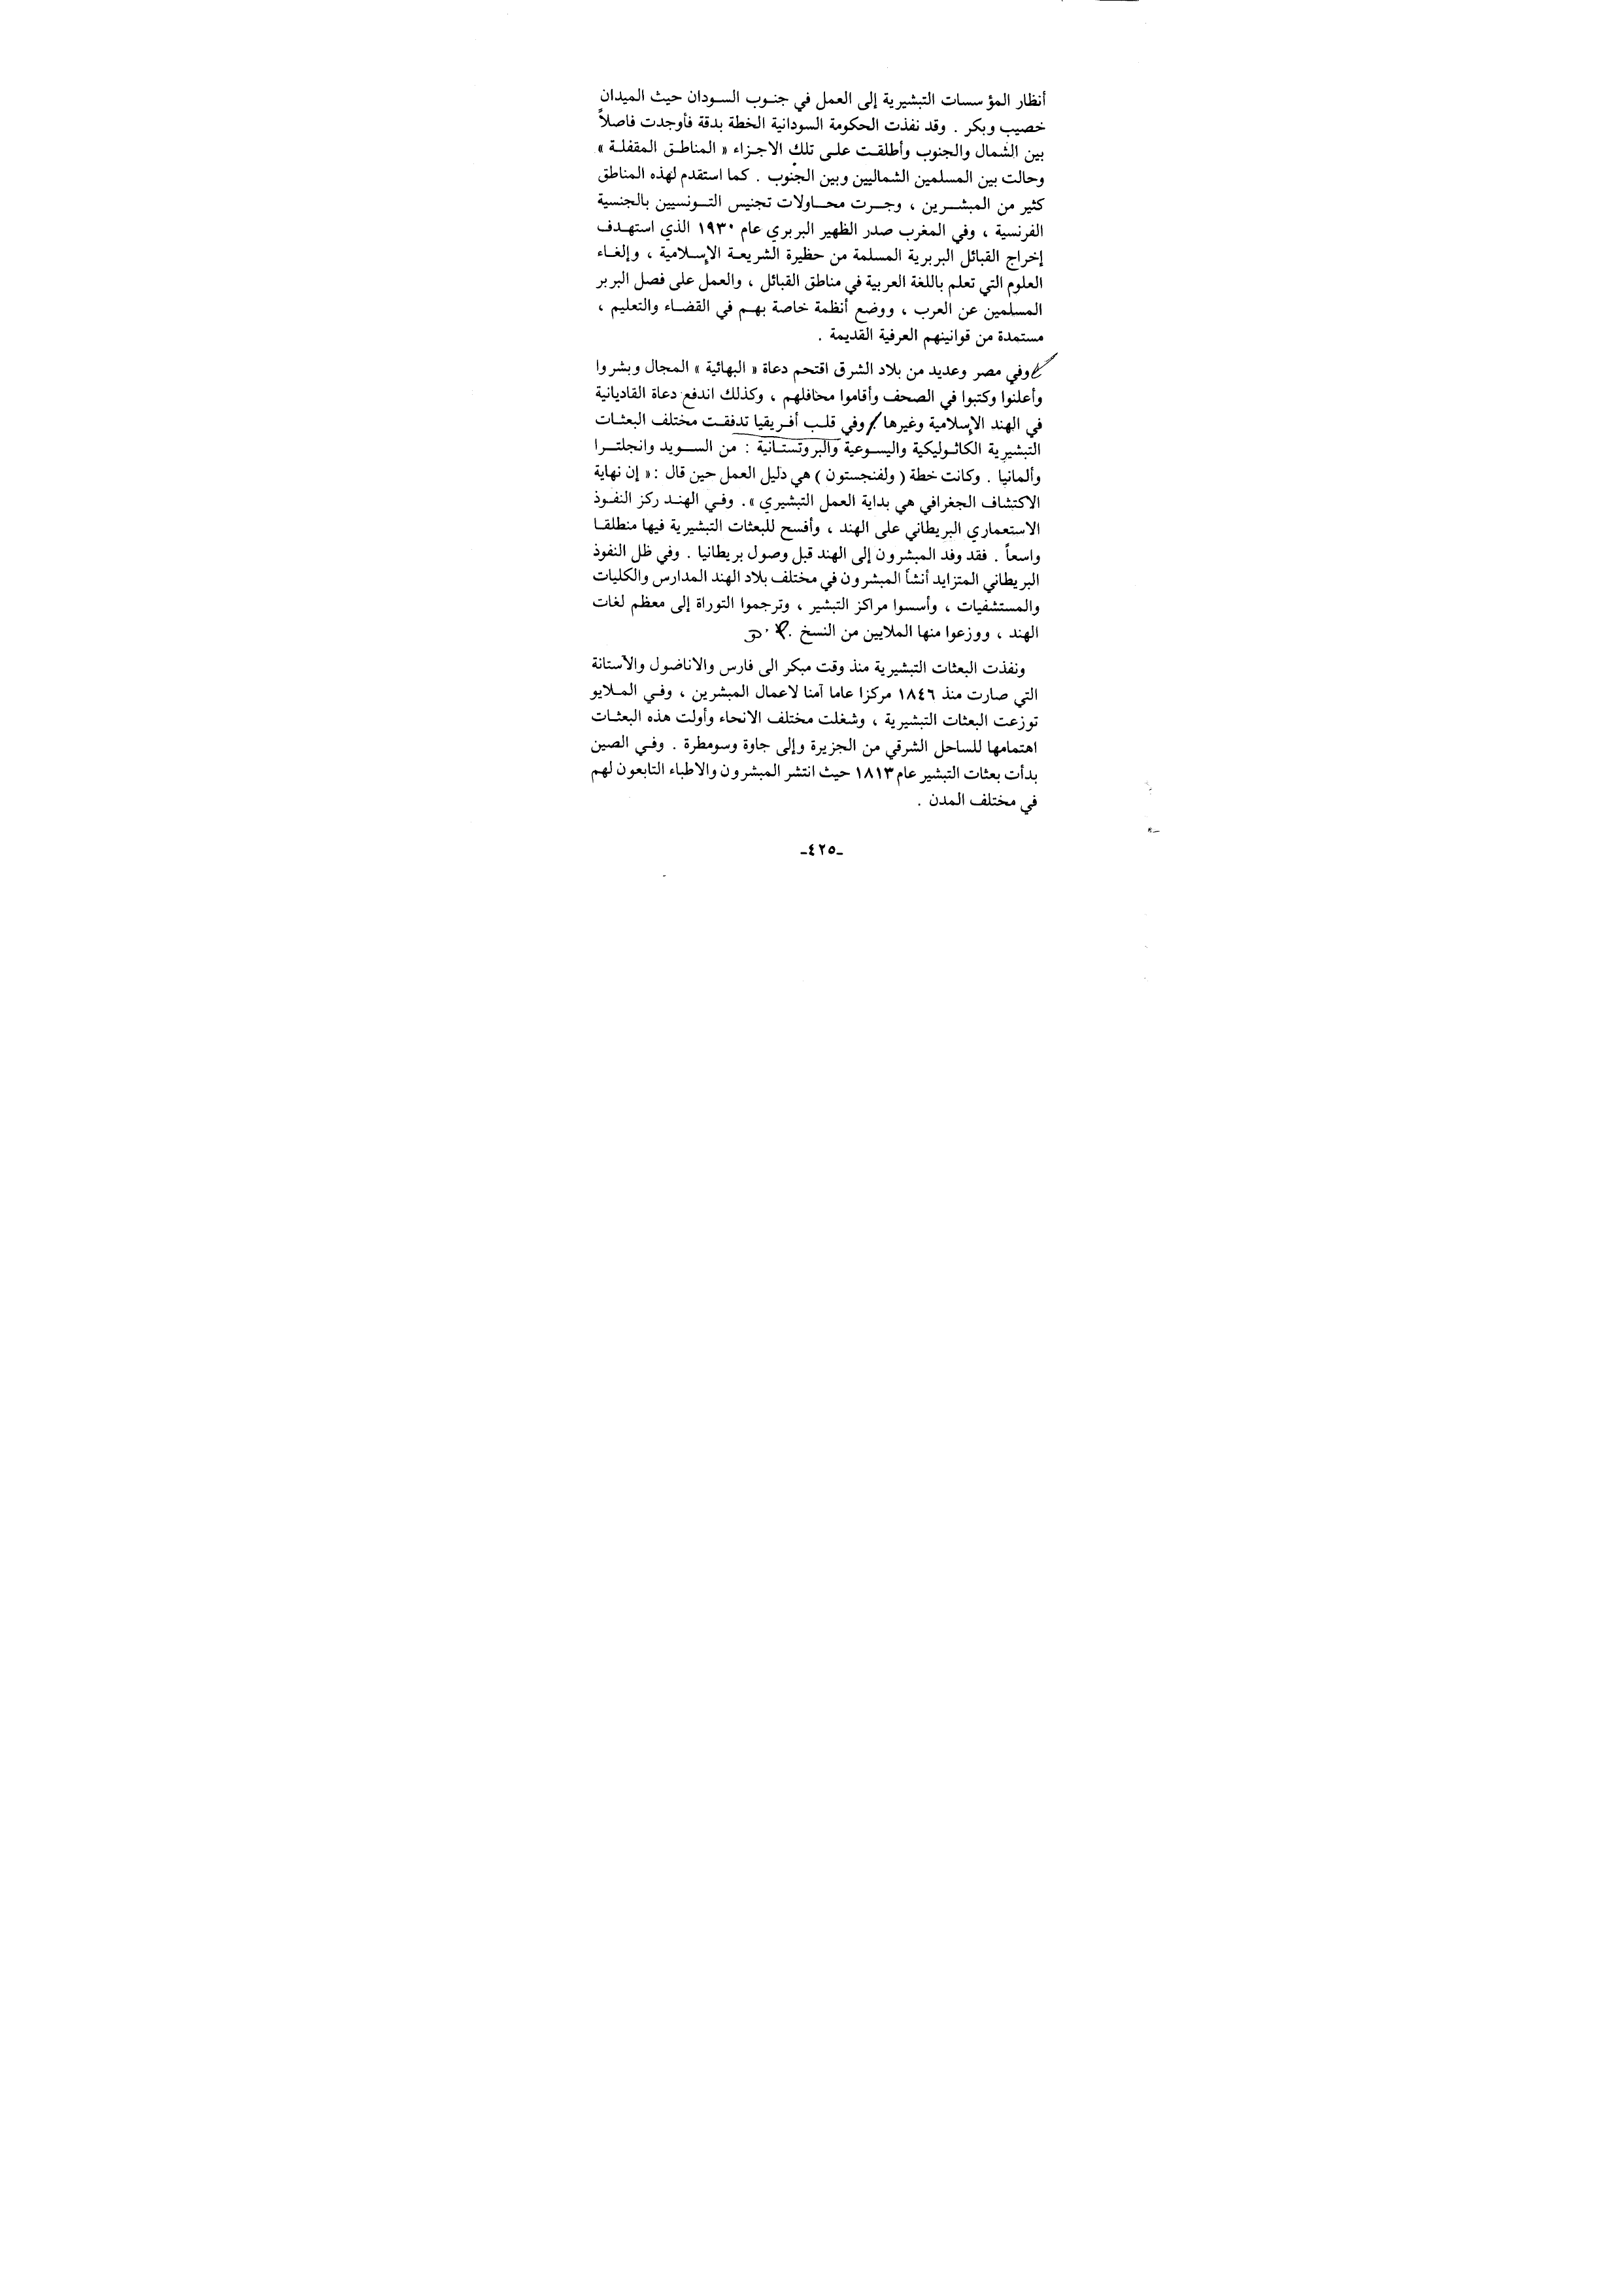 أنظار المؤسسات التبشيرية إلى العمل في جنوب السودان حيث الميدان
خصيب وبكر . وقد نفذت الحكومة السودانية الخطة بدقة فأوجدت فاصلاً
بين الشمال والجنوب وأطلقت على تلك الاجزاء « المناطق المقفلة »
وحالت بين المسلمين الشماليين وبين الجنوب . كما استقدم لهذه المناطق
كثير من المبشرين ، وجرت محاولات تجنيس التونسيين بالجنسية
الفرنسية ، وفي المغرب صدر الظهير البربري عام ١٩٣٠ الذي استهدف
إخراج القبائل البربرية المسلمة من حظيرة الشريعة الإسلامية ، وإلغاء
العلوم التي تعلم باللغة العربية في مناطق القبائل ، والعمل على فصل البربر
المسلمين عن العرب ، ووضع أنظمة خاصة بهم في القضاء والتعليم ،
مستمدة من قوانينهم العرفية القديمة .
وفي مصر وعديد من بلاد الشرق اقتحم دعاة « البهائية » المجال وبشروا
وأعلنوا وكتبوا في الصحف وأقاموا محافلهم ، وكذلك اندفع دعاة القاديانية
في الهند الإسلامية وغيرها . وفي قلب أفريقيا تدفقت مختلف البعثات
التبشيرية الكاثوليكية واليسوعية والبروتستانية : من السويد وانجلترا
وألمانيا . وكانت خطة ( ولفنجستون ) هي دليل العمل حين قال : « إن نهاية
الاكتشاف الجغرافي هي بداية العمل التبشيري » . وفي الهند ركز النفوذ
الاستعماري البريطاني على الهند ، وأفسح للبعثات التبشيرية فيها منطلقا
واسعاً . فقد وفد المبشرون إلى الهند قبل وصول بريطانيا . وفي ظل النفوذ
البريطاني المتزايد أنشأ المبشرون في مختلف بلاد الهند المدارس والكليات
والمستشفيات ، وأسسوا مراكز التبشير ، وترجموا التوراة إلى معظم لغات
الهند ، ووزعوا منها الملايين من النسخ .
ونفذت البعثات التبشيرية منذ وقت مبكر الى فارس والاناضول والآستانة
التي صارت منذ ١٨٤٦ مركزا عاما آمنا لاعمال المبشرين ، وفي الملايو
توزعت البعثات التبشيرية ، وشغلت مختلف الانحاء وأولت هذه البعثات
اهتمامها للساحل الشرقي من الجزيرة وإلى جاوة وسومطرة . وفي الصين
بدأت بعثات التبشير عام ١٨١٣ حيث انتشر المبشرون والاطباء التابعون لهم
في مختلف المدن .
-٤٢٥-